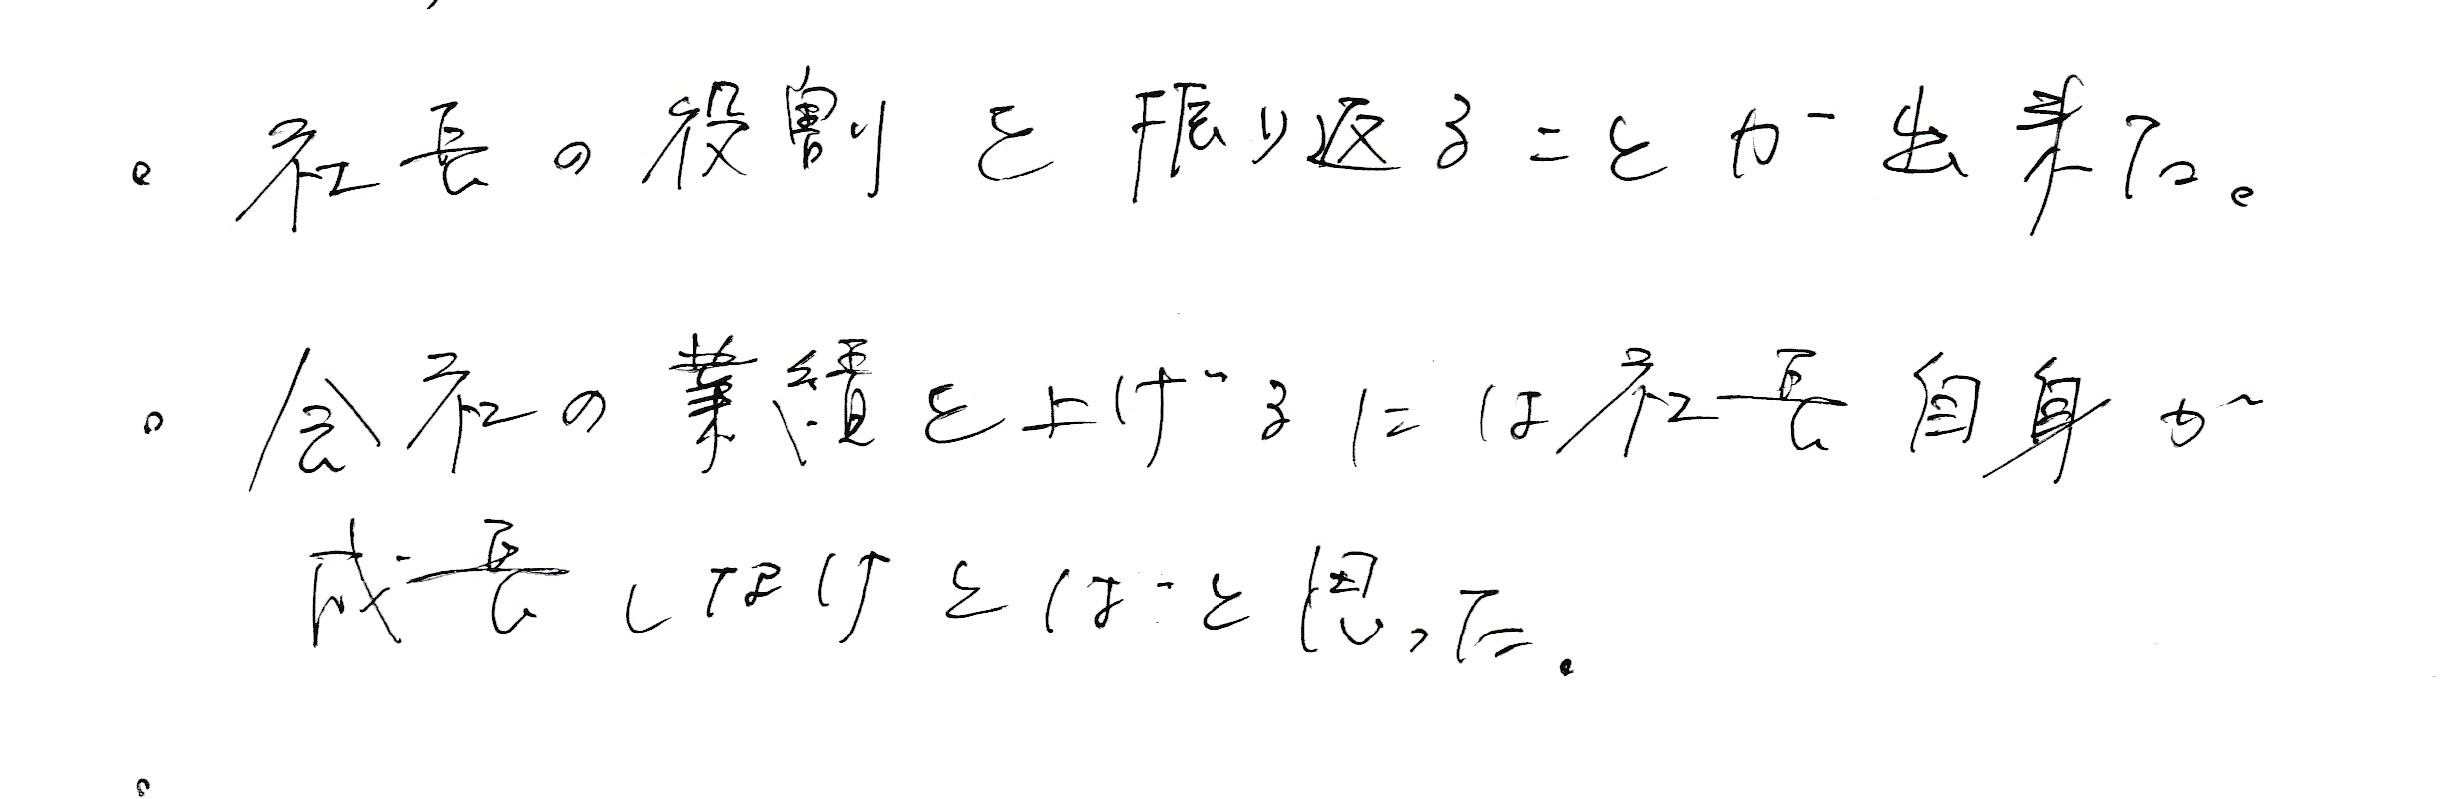 。社長の役割を振り返ることが出来た。
。会社の業績を上げるには社長自身が
成長しなけとばと思った.
。